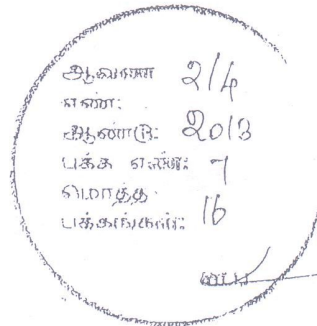 ஆவண 2/4
எண்:
ஆண்டு: 2013
பக்க எண்: 7
மொத்த
பக்கங்கள்: 16